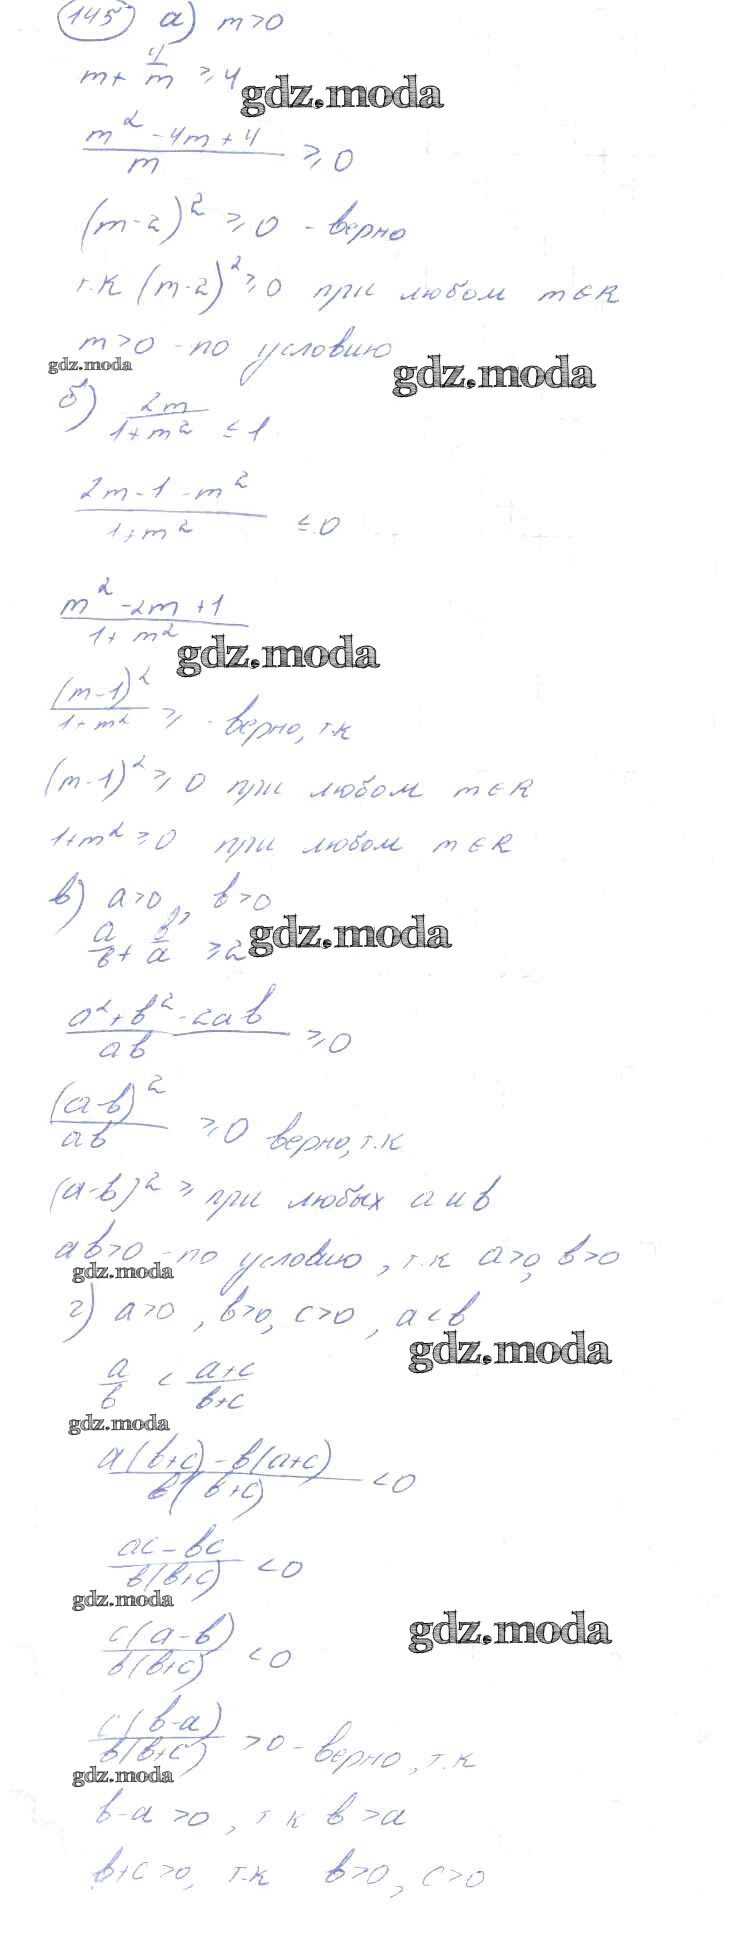 145 а) m>0
m + 4/m ⩾ 4
gdz.moda
(m² - 4m + 4)/m ⩾ 0
(m-2)² ⩾ 0 - верно
т.к (m-2)² ⩾ 0 при любом m∈R
m>0 - по условию
gdz.moda
gdz.moda
б) 2m/(1+m²) ≤ 1
(2m-1-m²)/(1+m²) ≤ 0
(m²-2m+1)/(1+m²)
gdz.moda
(m-1)²/(1+m²) ⩾ - верно, т.к
(m-1)² ⩾ 0 при любом m∈R
1+m² ⩾ 0 при любом m∈R
в) a>0, b>0
a/b + b/a ⩾ 2
gdz.moda
(a²+b²-2ab)/ab ⩾ 0
(a-b)²/ab ⩾ 0 верно, т.к
(a-b)² ⩾ при любых a и b
ab>0 - по условию, т.к a>0, b>0
gdz.moda
г) a>0, b>0, c>0, a<b
gdz.moda
a/b < (a+c)/(b+c)
gdz.moda
(a(b+c)-b(a+c))/(b(b+c)) <0
(ac-bc)/(b(b+c)) <0
gdz.moda
gdz.moda
c(a-b)/(b(b+c)) <0
c(b-a)/(b(b+c)) >0 - верно, т.к
gdz.moda
b-a>0, т к b>a
b+c>0, т.к b>0, c>0